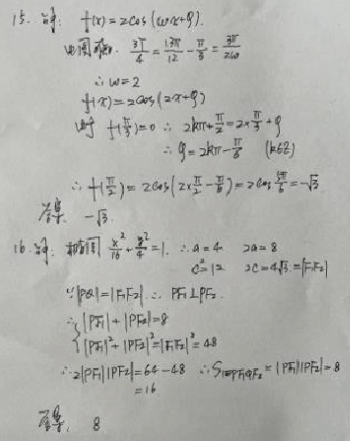 15. 解: f(x)=2cos(ωx+φ).
由图知. 3T/4 = 13π/12 - π/3 = 3π/2ω
∴ ω=2
f(x)=2cos(2x+φ)
由于 f(π/3)=0 ∴ 2kπ+π/2=2×π/3+φ
∴ φ=2kπ-π/6 (k∈Z)
∴ f(π/2)=2cos(2×π/2-π/6)=2cos5π/6=-√3
答案. -√3.
16. 解: 椭圆 x²/16+y²/4=1. ∴a=4 2a=8
c²=12 2c=4√3=|F₁F₂|
∵|PQ|=|F₁F₂| ∴ PF₁⊥PF₂
∴ { |PF₁|+|PF₂|=8
|PF₁|²+|PF₂|²=|F₁F₂|²=48
∴2|PF₁||PF₂|=64-48 ∴S四PF₁QF₂=|PF₁||PF₂|=8
=16
答案. 8